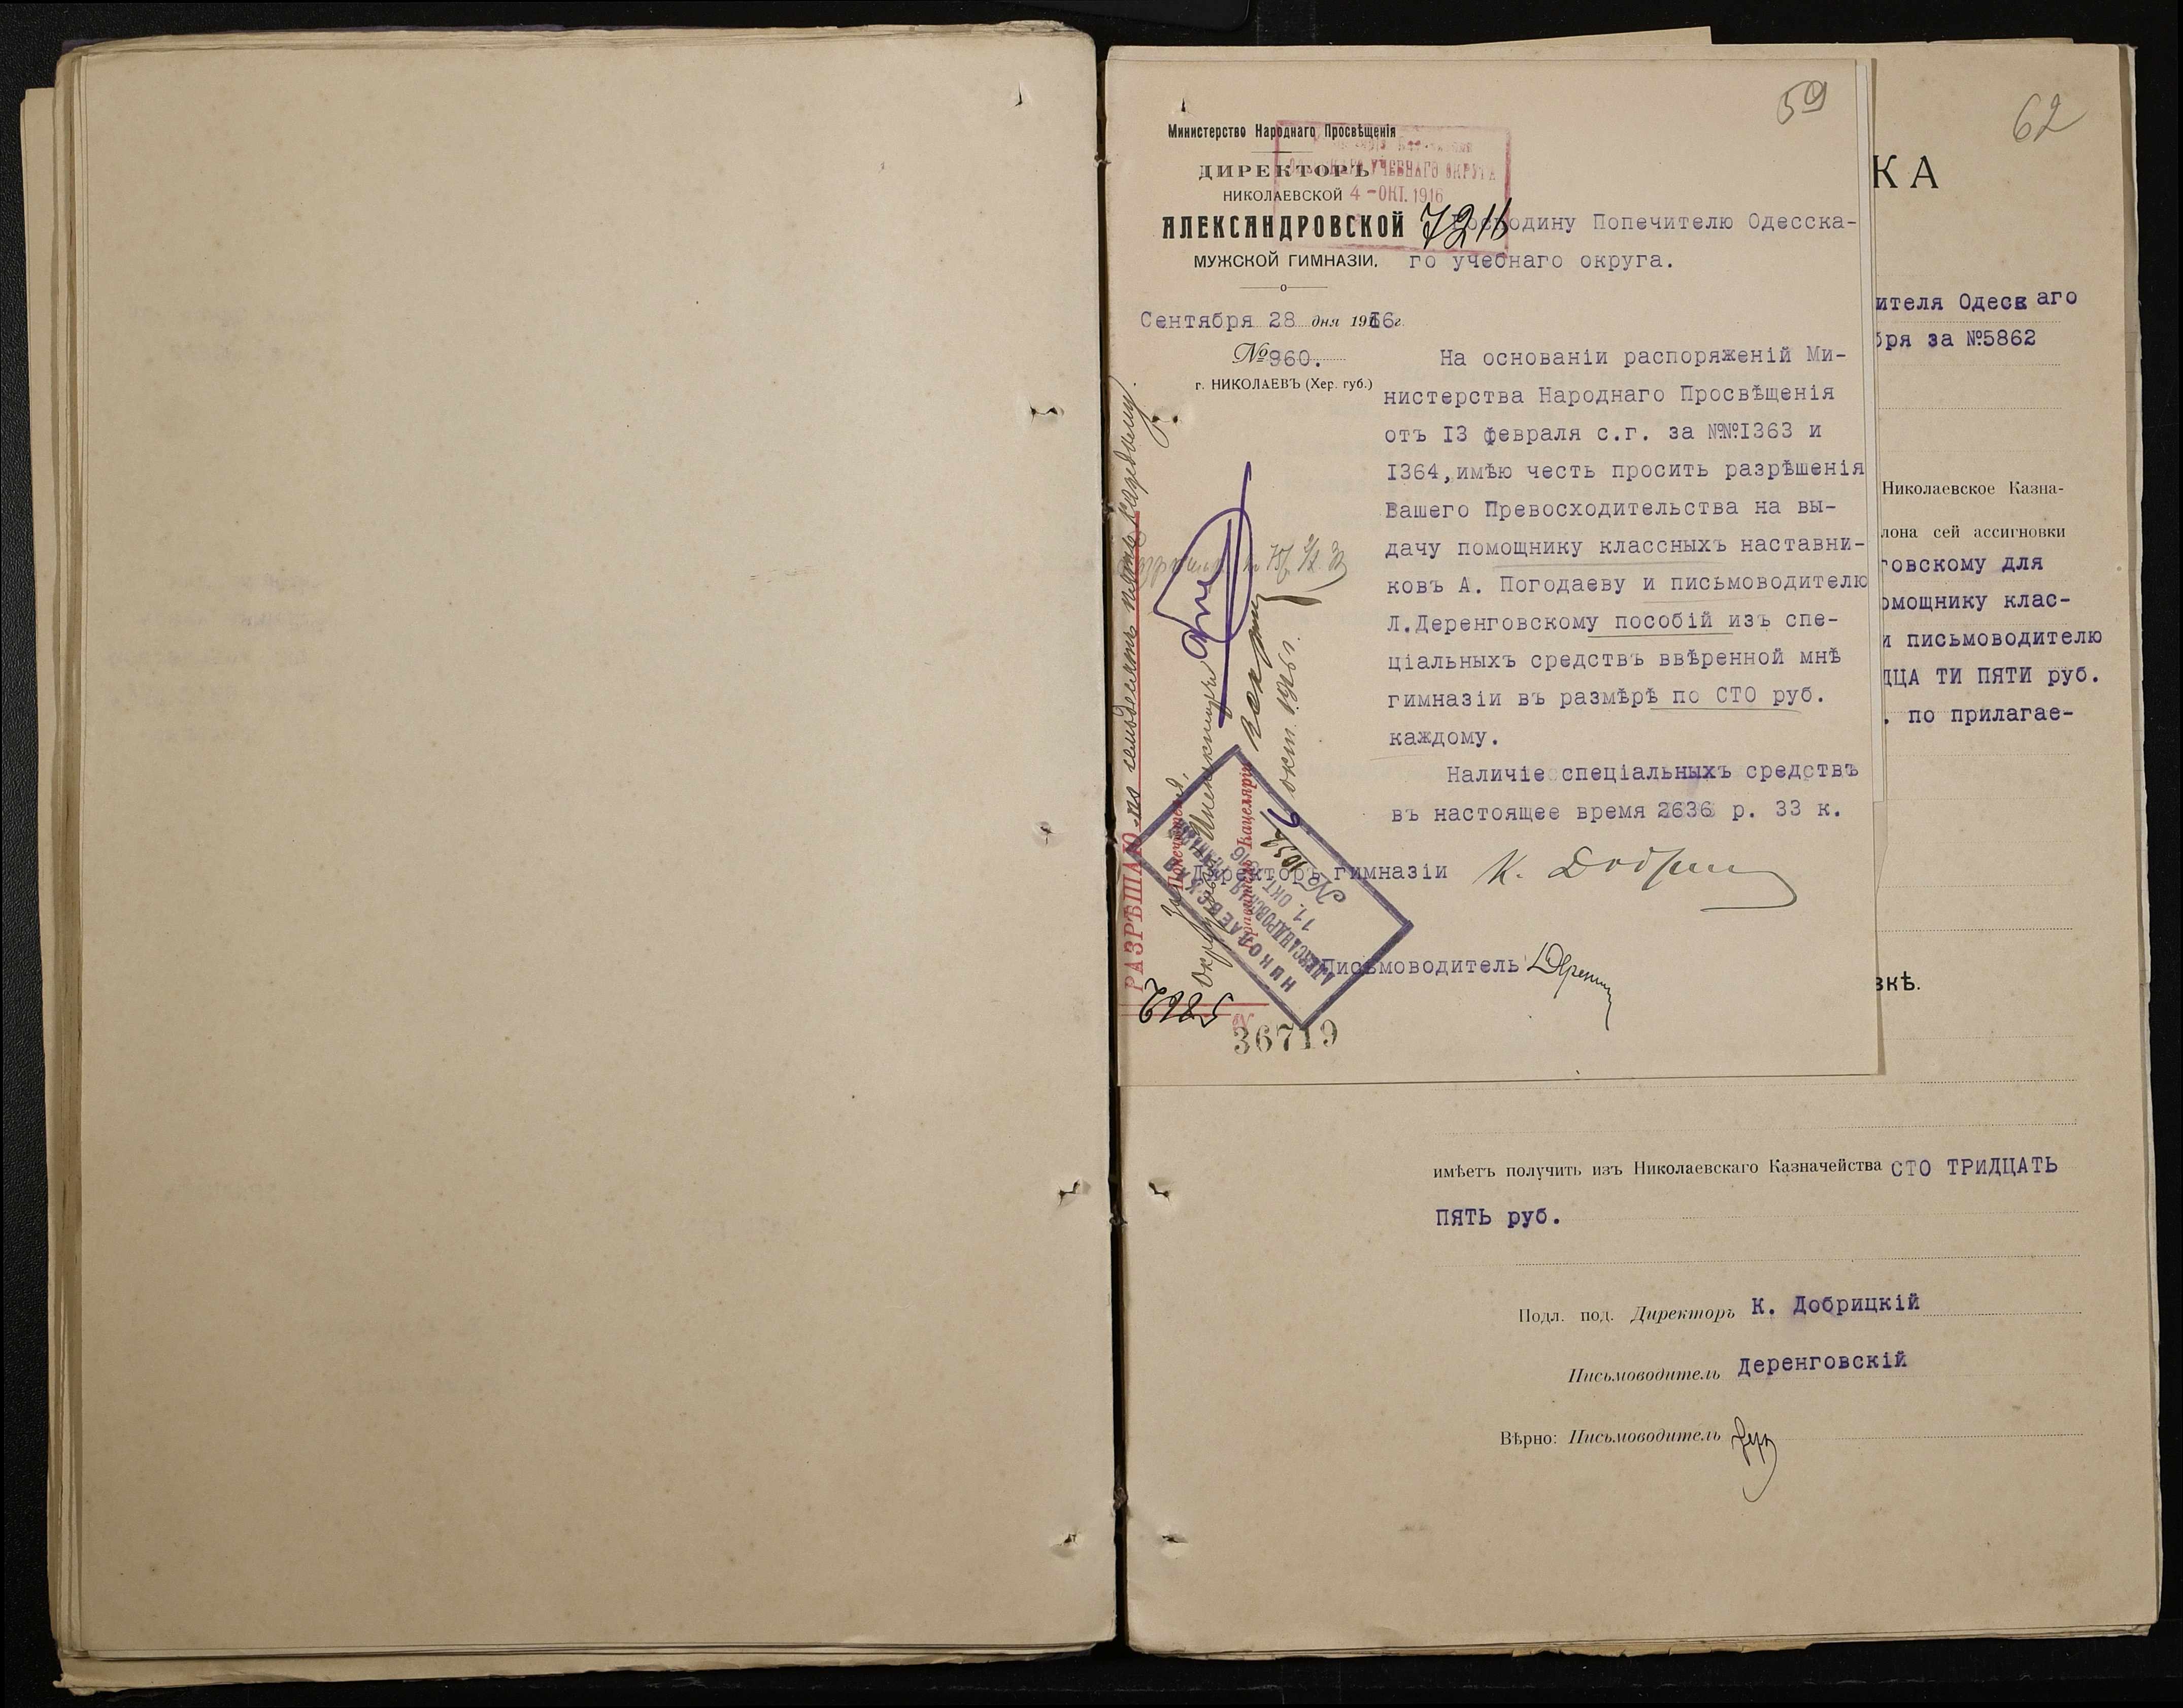 59
Министерство Народнаго Просвѣщенія
ДИРЕКТОРЪ
НИКОЛАЕВСКОЙ
АЛЕКСАНДРОВСКОЙ
МУЖСКОЙ ГИМНАЗІИ.
УЧЕБНАГО ОКРУГА
4 - ОКТ. 1916
7216
Господину Попечителю Одесска-
го учебнаго округа.
Сентября 28 дня 1916 г.
№ 960.
г. НИКОЛАЕВЪ (Хер. губ.)
На основаніи распоряженій Ми-
нистерства Народнаго Просвѣщенія
отъ I3 февраля с.г. за №№I363 и
I364,имѣю честь просить разрѣшенія
Вашего Превосходительства на вы-
дачу помощнику классныхъ наставни-
ковъ А. Погодаеву и письмоводителю
Л.Деренговскому пособій изъ спе-
ціальныхъ средствъ ввѣренной мнѣ
гимназіи въ размѣрѣ по СТО руб.
каждому.
Наличіе спеціальныхъ средствъ
въ настоящее время 2636 р. 33 к.
Директоръ гимназіи
Письмоводитель
РАЗРѢШАЮ по семьдесятъ пять каждому.
Попечителя,
Окружный Инспекторъ
Правитель Канцеляріи
6 окт. 1916 г.
№ 5862
НИКОЛАЕВСКАЯ
АЛЕКСАНДРОВСКАЯ
11. ОКТ 1916
№ 1032
36719
62
КА
ителя Одесскаго
бря за №5862
Николаевское Казна-
лона сей ассигновки
говскому для
омощнику клас-
и письмоводителю
ДЦА ТИ ПЯТИ руб.
. по прилагае-
вкѣ.
имѣетъ получить изъ Николаевскаго Казначейства СТО ТРИДЦАТЬ
ПЯТЬ руб.
Подл. под. Директоръ К. Добрицкій
Письмоводитель Деренговскій
Вѣрно: Письмоводитель